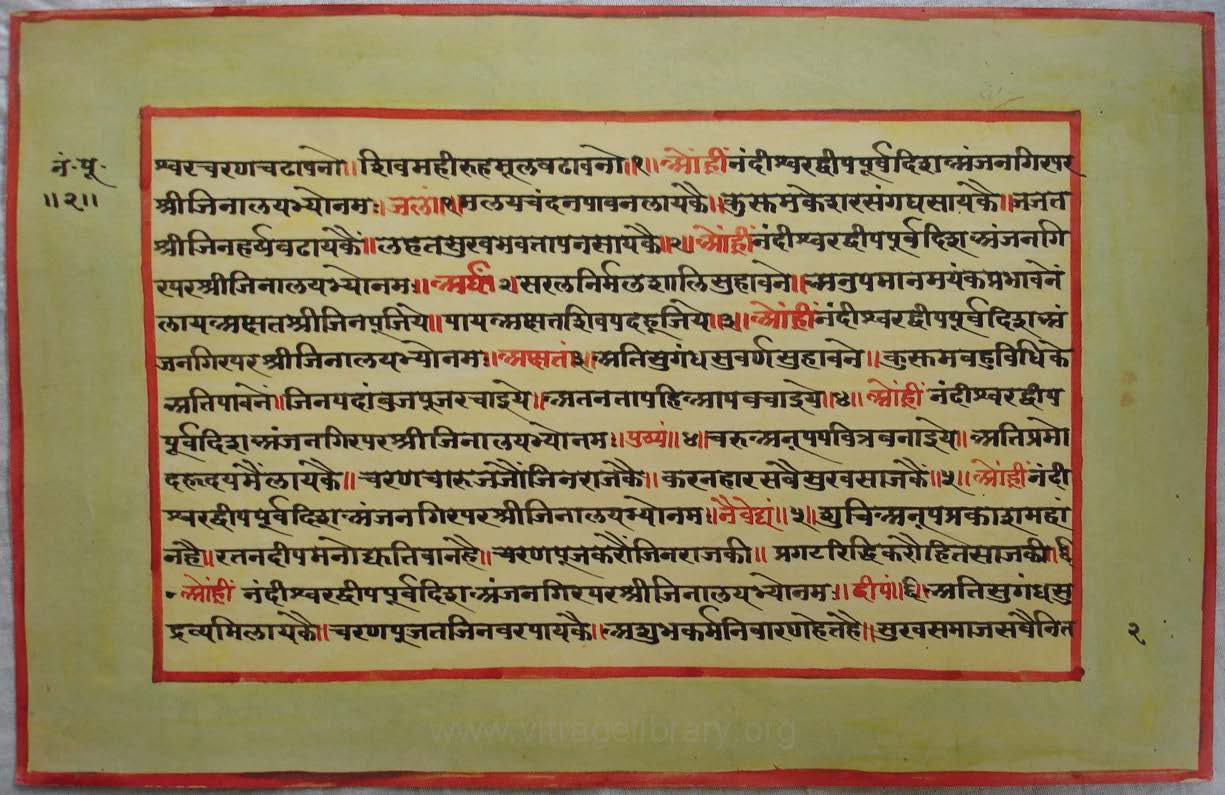 नं॰पू॰
॥२॥
श्वरचरणचढावनो॥शिवमहीरुहमूलवढावनो॥१॥ओंह्रीं नंदीश्वरद्वीपपूर्वदिशअंजनगिरपर
श्रीजिनालयभ्योनमः॥जलं॥१॥मलयचंदनपावनलायकै॥कुस्तमकेशरसंगघसायकै॥जजत
श्रीजिनहर्यवढायकैं॥लहतसुखभवतापनसायकै॥२॥ओंह्रींनंदीश्वरद्वीपपूर्वदिशअंजनगि
रपरश्रीजिनालयभ्योनमः॥अर्घं॥२॥सरलनिर्मलशालिसुहावने॥अनुपमानमयंकप्रभावनें
लायअक्षतश्रीजिनपूजिये॥पायअक्षतशिवपदहूजिये॥३॥ओंह्रींनंदीश्वरद्वीपपूर्वदिशअं
जनगिरपरश्रीजिनालयभ्योनमः॥अक्षतं॥३॥अतिसुगंधसुवर्णसुहावने॥कुस्तमवहुविधिके
अतिपावनें॥जिनपदांवुजपूजरचाइये॥अतनतापहिआपवचाइये॥४॥ओंह्रीं नंदीश्वरद्वीप
पूर्वदिशअंजनगिरपरश्रीजिनालयभ्योनमः॥पुष्पं॥४॥चरुअनूपपवित्रवनाइये॥अतिप्रमो
दहृदयमैंलायकै॥चरणचारुजजौंजिनराजकै॥करनहारसवैसुखसाजकैं॥५॥ओंह्रींनंदी
श्वरद्वीपपूर्वदिशअंजनगिरपरश्रीजिनालयभ्योनमः॥नैवेद्यं॥५॥शुचिअनूपप्रकाशमहां
नहै॥रतनदीपमनोद्युतिवानहै॥चरणपूजकरौंजिनराजकी॥ प्रगटरिद्धिकरौहितसाजकी॥६॥
ओंह्रीं नंदीश्वरद्वीपपूर्वदिशअंजनगिरपरश्रीजिनालयभ्योनमः॥दीपं॥६॥अतिसुगंधसु
द्रव्यमिलायकै॥चरणपूजतजिनवरपायकै॥अशुभकर्मनिवारणहेतहै॥सुखसमाजसवैनित
२
www.vitragelibrary.org